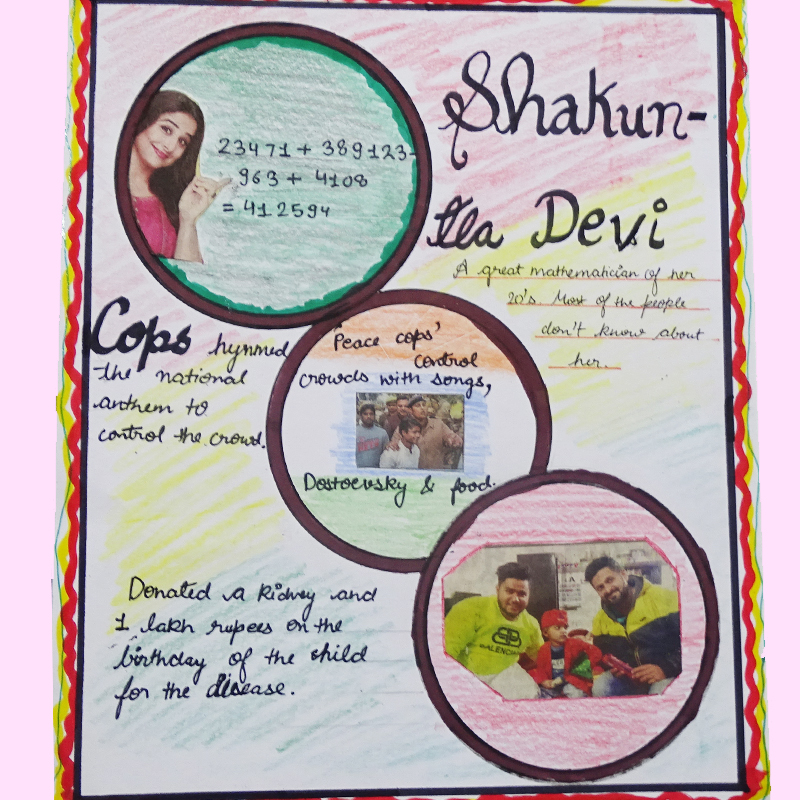 Shakun-
tla Devi
A great mathematician of her
20's. Most of the people
don't know about
her.
23471 + 389123-
963 + 4108
= 412594
Cops hymned
the national
anthem to
control the crowd.
'Peace cops'
control
crowds with songs,
Dostoevsky & food.
Donated a kidney and
1 lakh rupees on the
birthday of the child
for the disease.
BALENCI